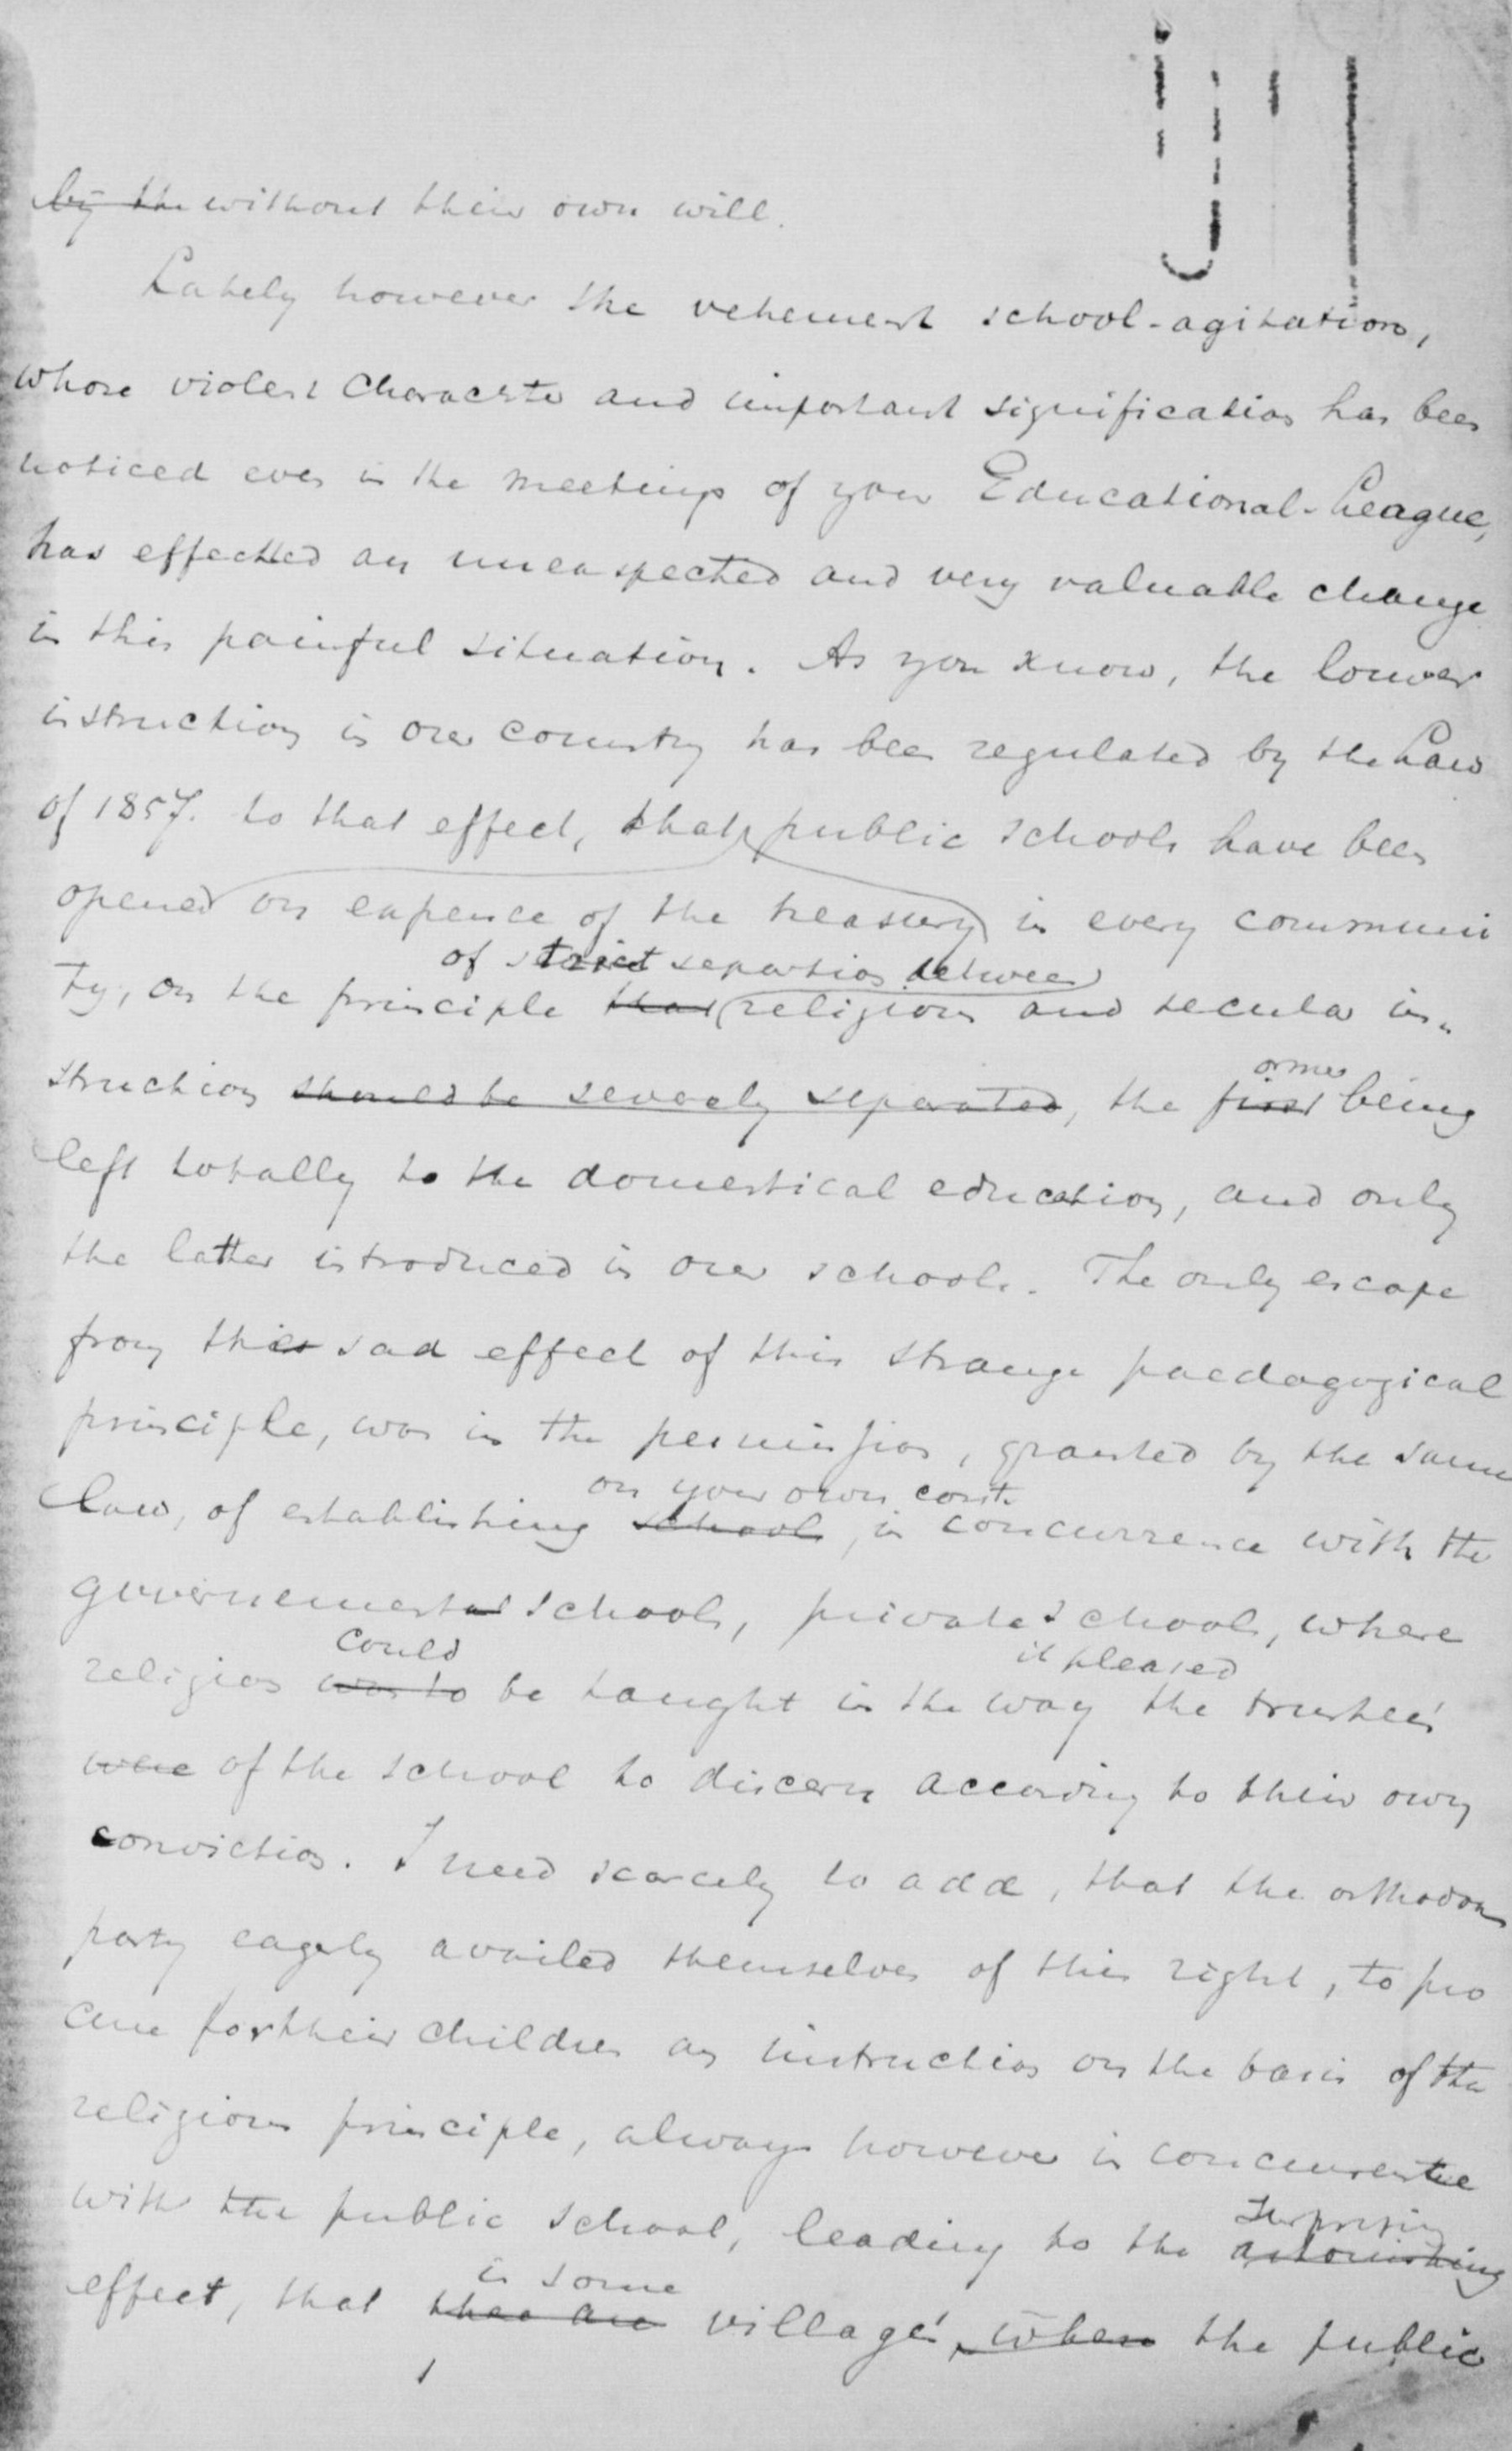 by the without their own will.
Lately however the vehement school-agitation,
whose violent character and important signification has been
noticed even in the meetings of your Educational-League,
has effectted an uneaspected and very valuable change
in this painful situation. As you know, the lower
instruction in our country has been regulated by the Law
of 1857. to that effect, that public schools have been
opened on expence of the treasury in every communi
of strict separation between
ty, on the principle that religious and secular in„
ormer
struction should be severely separated, the first being
left totally to the domestical education, and only
the latter introduced in our schools. The only escape
from this sad effect of this strange paedagogical
principle, was in the permission, granted by the same
on your own cost.
law, of establishing schools, in concurrence with the
governemental schools, private schools, where
could it pleased
religion was to be taught in the way the trustee's
were of the school to discern according to their own
conviction. I need scarcely to add, that the orthodox
party eagerly availed themselves of this right, to pro
cure for their children an instruction on the basis of the
religious principle, always however in concurrence
with the public school, leading to the astonishing
surprising
in some
effect, that there are village's, where the public